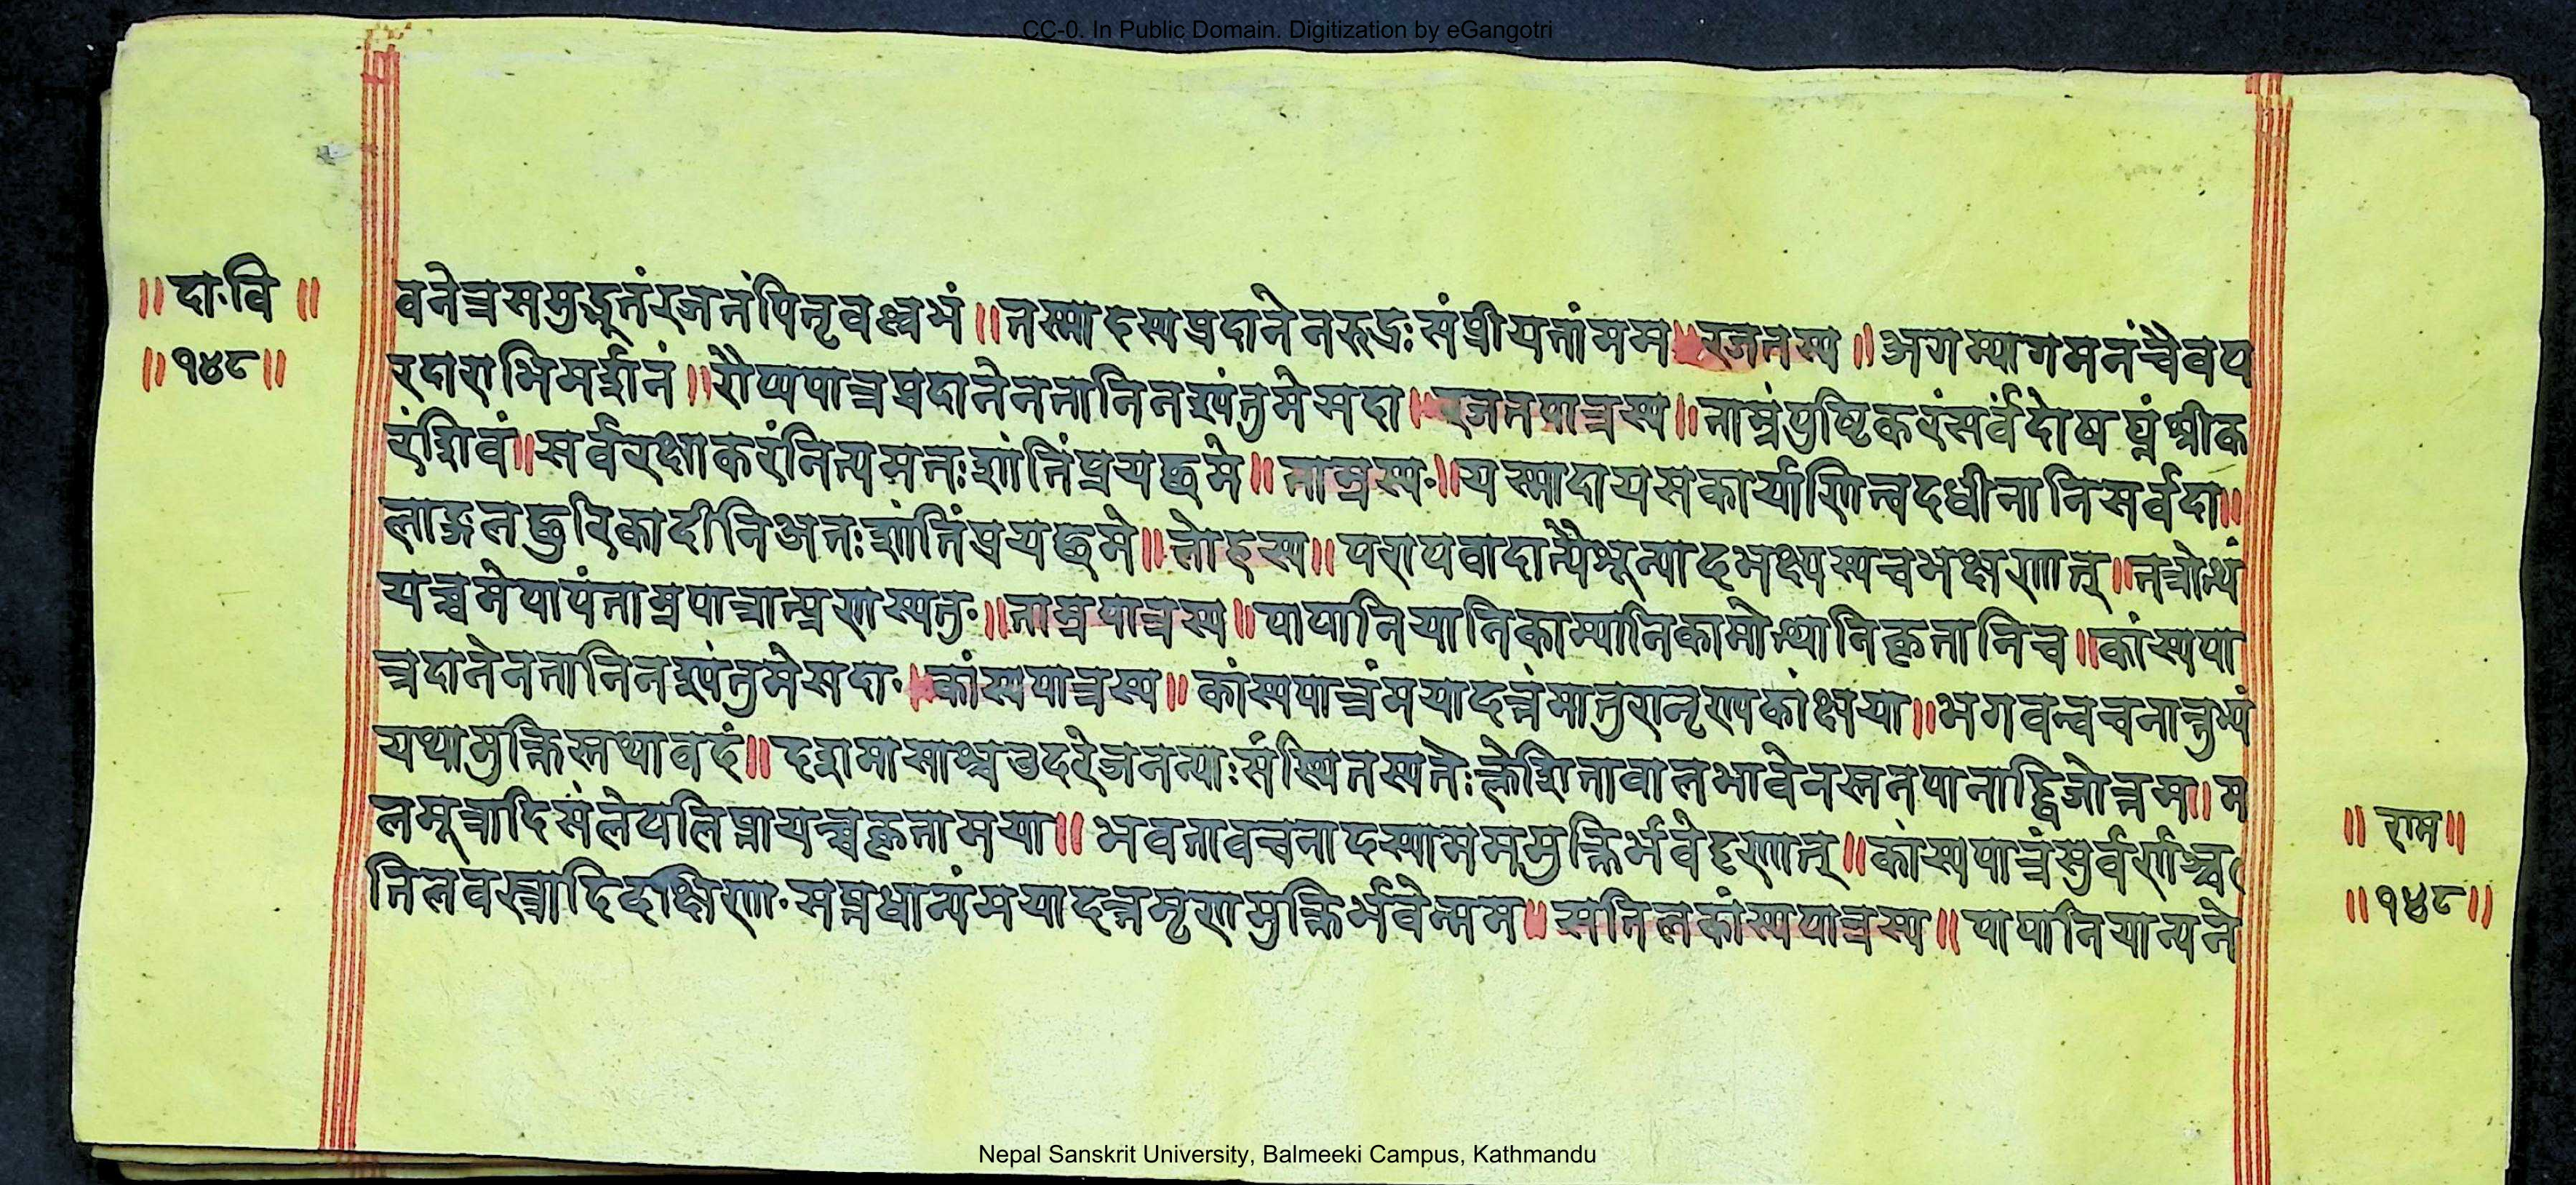 CC-0. In Public Domain. Digitization by eGangotri
॥दा·वि॥
॥१४८॥
वनेत्रसमुद्भूतंरजतंपितृवल्लभं॥तस्मादस्यप्रदानेनरुद्रःसंप्रीयतांमम॥रजतस्य॥अगम्यागमनंचैवप
रदाराभिमर्द्दानं॥रौप्यपात्रप्रदानेनतानिनश्यंतुमेसदा॥रजतपात्रस्य॥ताम्रंपुष्टिकरंसर्वदोषघ्नंश्रीक
रंशिवं॥सर्वरक्षाकरंनित्यमतःशांतिंप्रयछमे॥ताम्रस्य·॥यस्मादायसकार्याणित्वदधीनानिसर्वदा॥
लाङ्गलछुरिकादीनिअतःशांतिंप्रयछमे॥लोहस्य॥परापवादात्पैशून्यादभक्ष्यस्यचभक्षणात्॥तत्रोत्थं
यच्चमेपापंताम्रपात्रात्प्रणस्यतु·॥ताम्रपात्रस्य॥पापानियानिकाम्यानिकामोत्थानिकृतानिच॥कांस्यपा
त्रदानेनतानिनश्यंतुमेसदा·॥कांस्यपात्रस्य॥कांस्यपात्रंमयादत्तंमातुरानृण्यकांक्षया॥भगवन्वचनात्तुभ्यं
यथामुक्तिस्तथावदं॥दशमासाश्चउदरेजनन्याःसंस्थितस्यतेःक्लेशितावालभावेनस्तनपानाद्द्विजोत्तम॥म
लमूत्रादिसंलेपलिप्तायच्चकृतामया॥भवतावचनादस्यामममुक्तिर्भवेदृणात्॥कांस्यपात्रंसुवर्णंश्च
तिलवस्त्रादिदक्षिणा·सप्तधान्यंमयादत्तमृणमुक्तिर्भवेन्मम॥सतिलकांस्यपात्रस्य॥पापानियान्यने
॥राम॥
॥१४८॥
Nepal Sanskrit University, Balmeeki Campus, Kathmandu